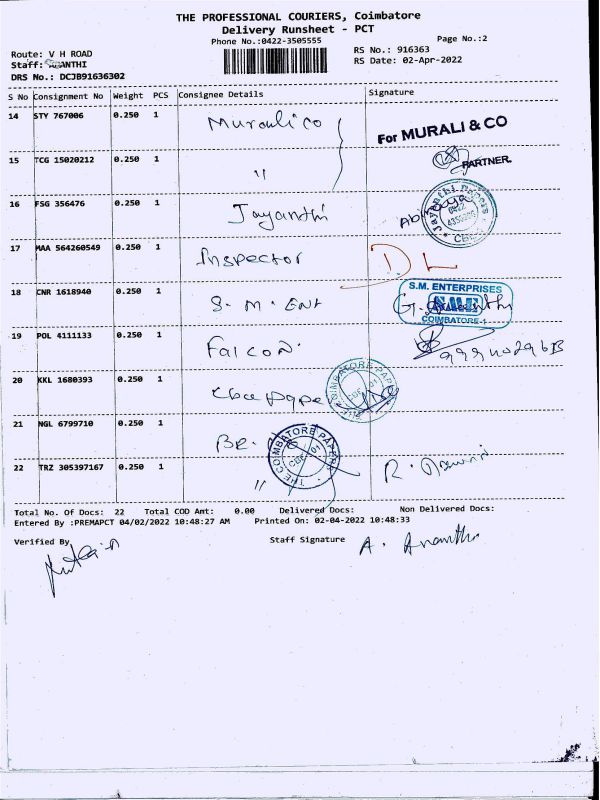 THE PROFESSIONAL COURIERS, Coimbatore
Delivery Runsheet - PCT
Phone No.:0422-3505555
Page No.:2
Route: V H ROAD
RS No.: 916363
Staff: ANANTHI
RS Date: 02-Apr-2022
DRS No.: DCJB91636302
S No Consignment No Weight PCS Consignee Details Signature
14 STY 767006 0.250 1 Murali co For MURALI & CO
15 TCG 15020212 0.250 1 " PARTNER.
16 FSG 356476 0.250 1 Jayanthi Jayanthi Papers 0422 CBE
17 MAA 564260549 0.250 1 Inspector D. L
18 CNR 1618940 0.250 1 S. M. Ent S.M. ENTERPRISES S.M.E COIMBATORE-1
19 POL 4111133 0.250 1 Falcon
20 KKL 1680393 0.250 1 Cbe pape THE COIMBATORE PAPERS CBE 01
21 NGL 6799710 0.250 1 BR. THE COIMBATORE PAPERS CBE 01
22 TRZ 305397167 0.250 1 " R.
Total No. Of Docs: 22 Total COD Amt: 0.00 Delivered Docs: Non Delivered Docs:
Entered By :PREMAPCT 04/02/2022 10:48:27 AM Printed On: 02-04-2022 10:48:33
Verified By Staff Signature A. Ananthi